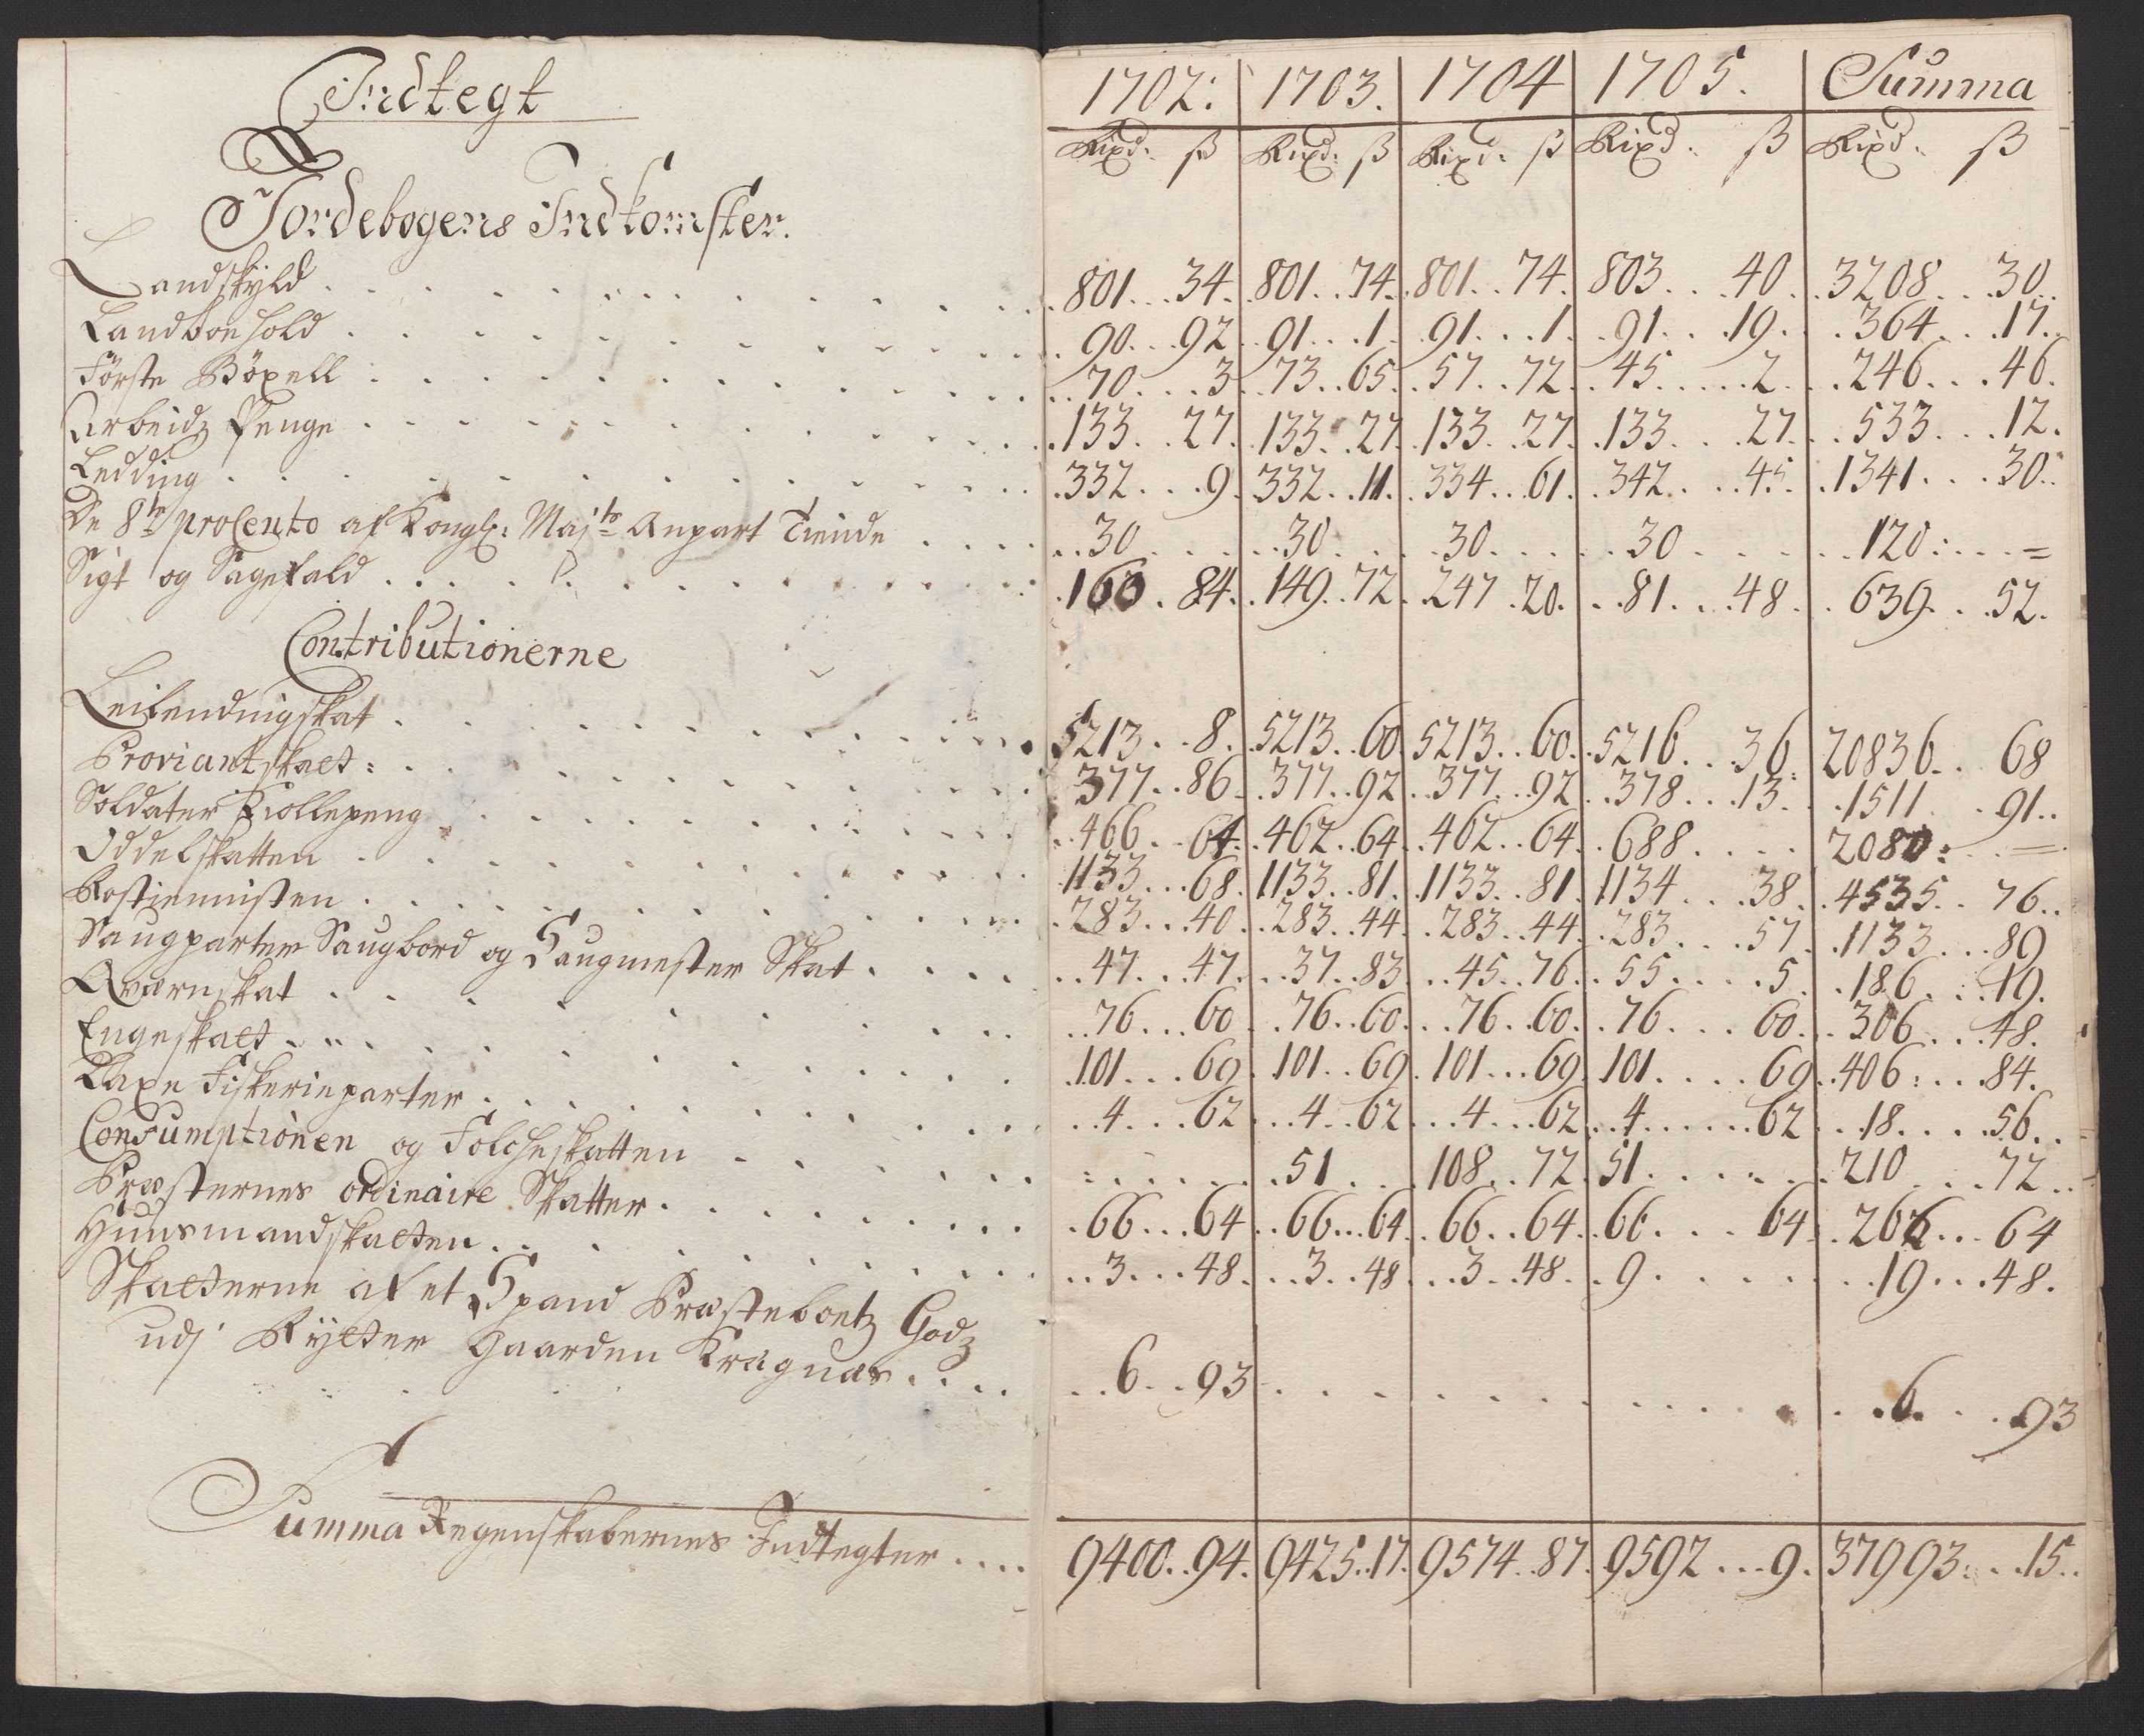 Indtegt
Jordebogens Indkomster.
1702: 1703. 1704 1705. Summa
Rixd: ß Rixd: ß Rixd: ß Rixd: ß Rixd: ß
Landskyld 801 34. 801 74. 801 74. 803 40 3208 30
Landboehold 90 92 91 1 91 1 91 19 364 17
Förste Böxell 70 3 73 65 57 72 45 2 246 46
Arbeidz Penge 133 27 133 27 133 27 133 27 533 12
Ledding 332 9 332 11 334 61 342 45 1341 30
De 8te procento af Kongl: Majts Anpart Tiende 30 30 30 30 120 =
Sigt og Sagefald 160 84 149 72 247 20 81 48 639 52
Contributionerne
Leilendingskat 5213 8 5213 60 5213 60 5216 36 20836 68
Proviantskatt 377 86 377 92 377 92 378 13 1511 91
Soldater Kiollepeng 466 64 462 64 462 64 688 2080 =
Oddelskatten 1133 68 1133 81 1133 81 1134 38 4535 76
Rostiennisten 283 40 283 44 283 44 283 57 1133 89
Saugparter Saugbord og Saugmester Skat 47 47 37 83 45 76 55 5 186 19
Qværnskat 76 60 76 60 76 60 76 60 306 48
Engeskatt 101 69 101 69 101 69 101 69 406 84
Laxe Fiskerieparter 4 62 4 62 4 62 4 62 18 56
Consumptionen og Folcheskatten 51 108 72 51 210 72
Præsternes ordinaire Skatter 66 64 66 64 66 64 66 64 266 64
Huusmandskatten 3 48 3 48 3 48 9 19 48
Skatterne af et Spand Præsteboels Godz
udj Rytter Gaarden Kragnæs 6 93 6 93
Summa Regenskabernes Indtegter 9400 94. 9425 17. 9574 87. 9592 9. 37993 15